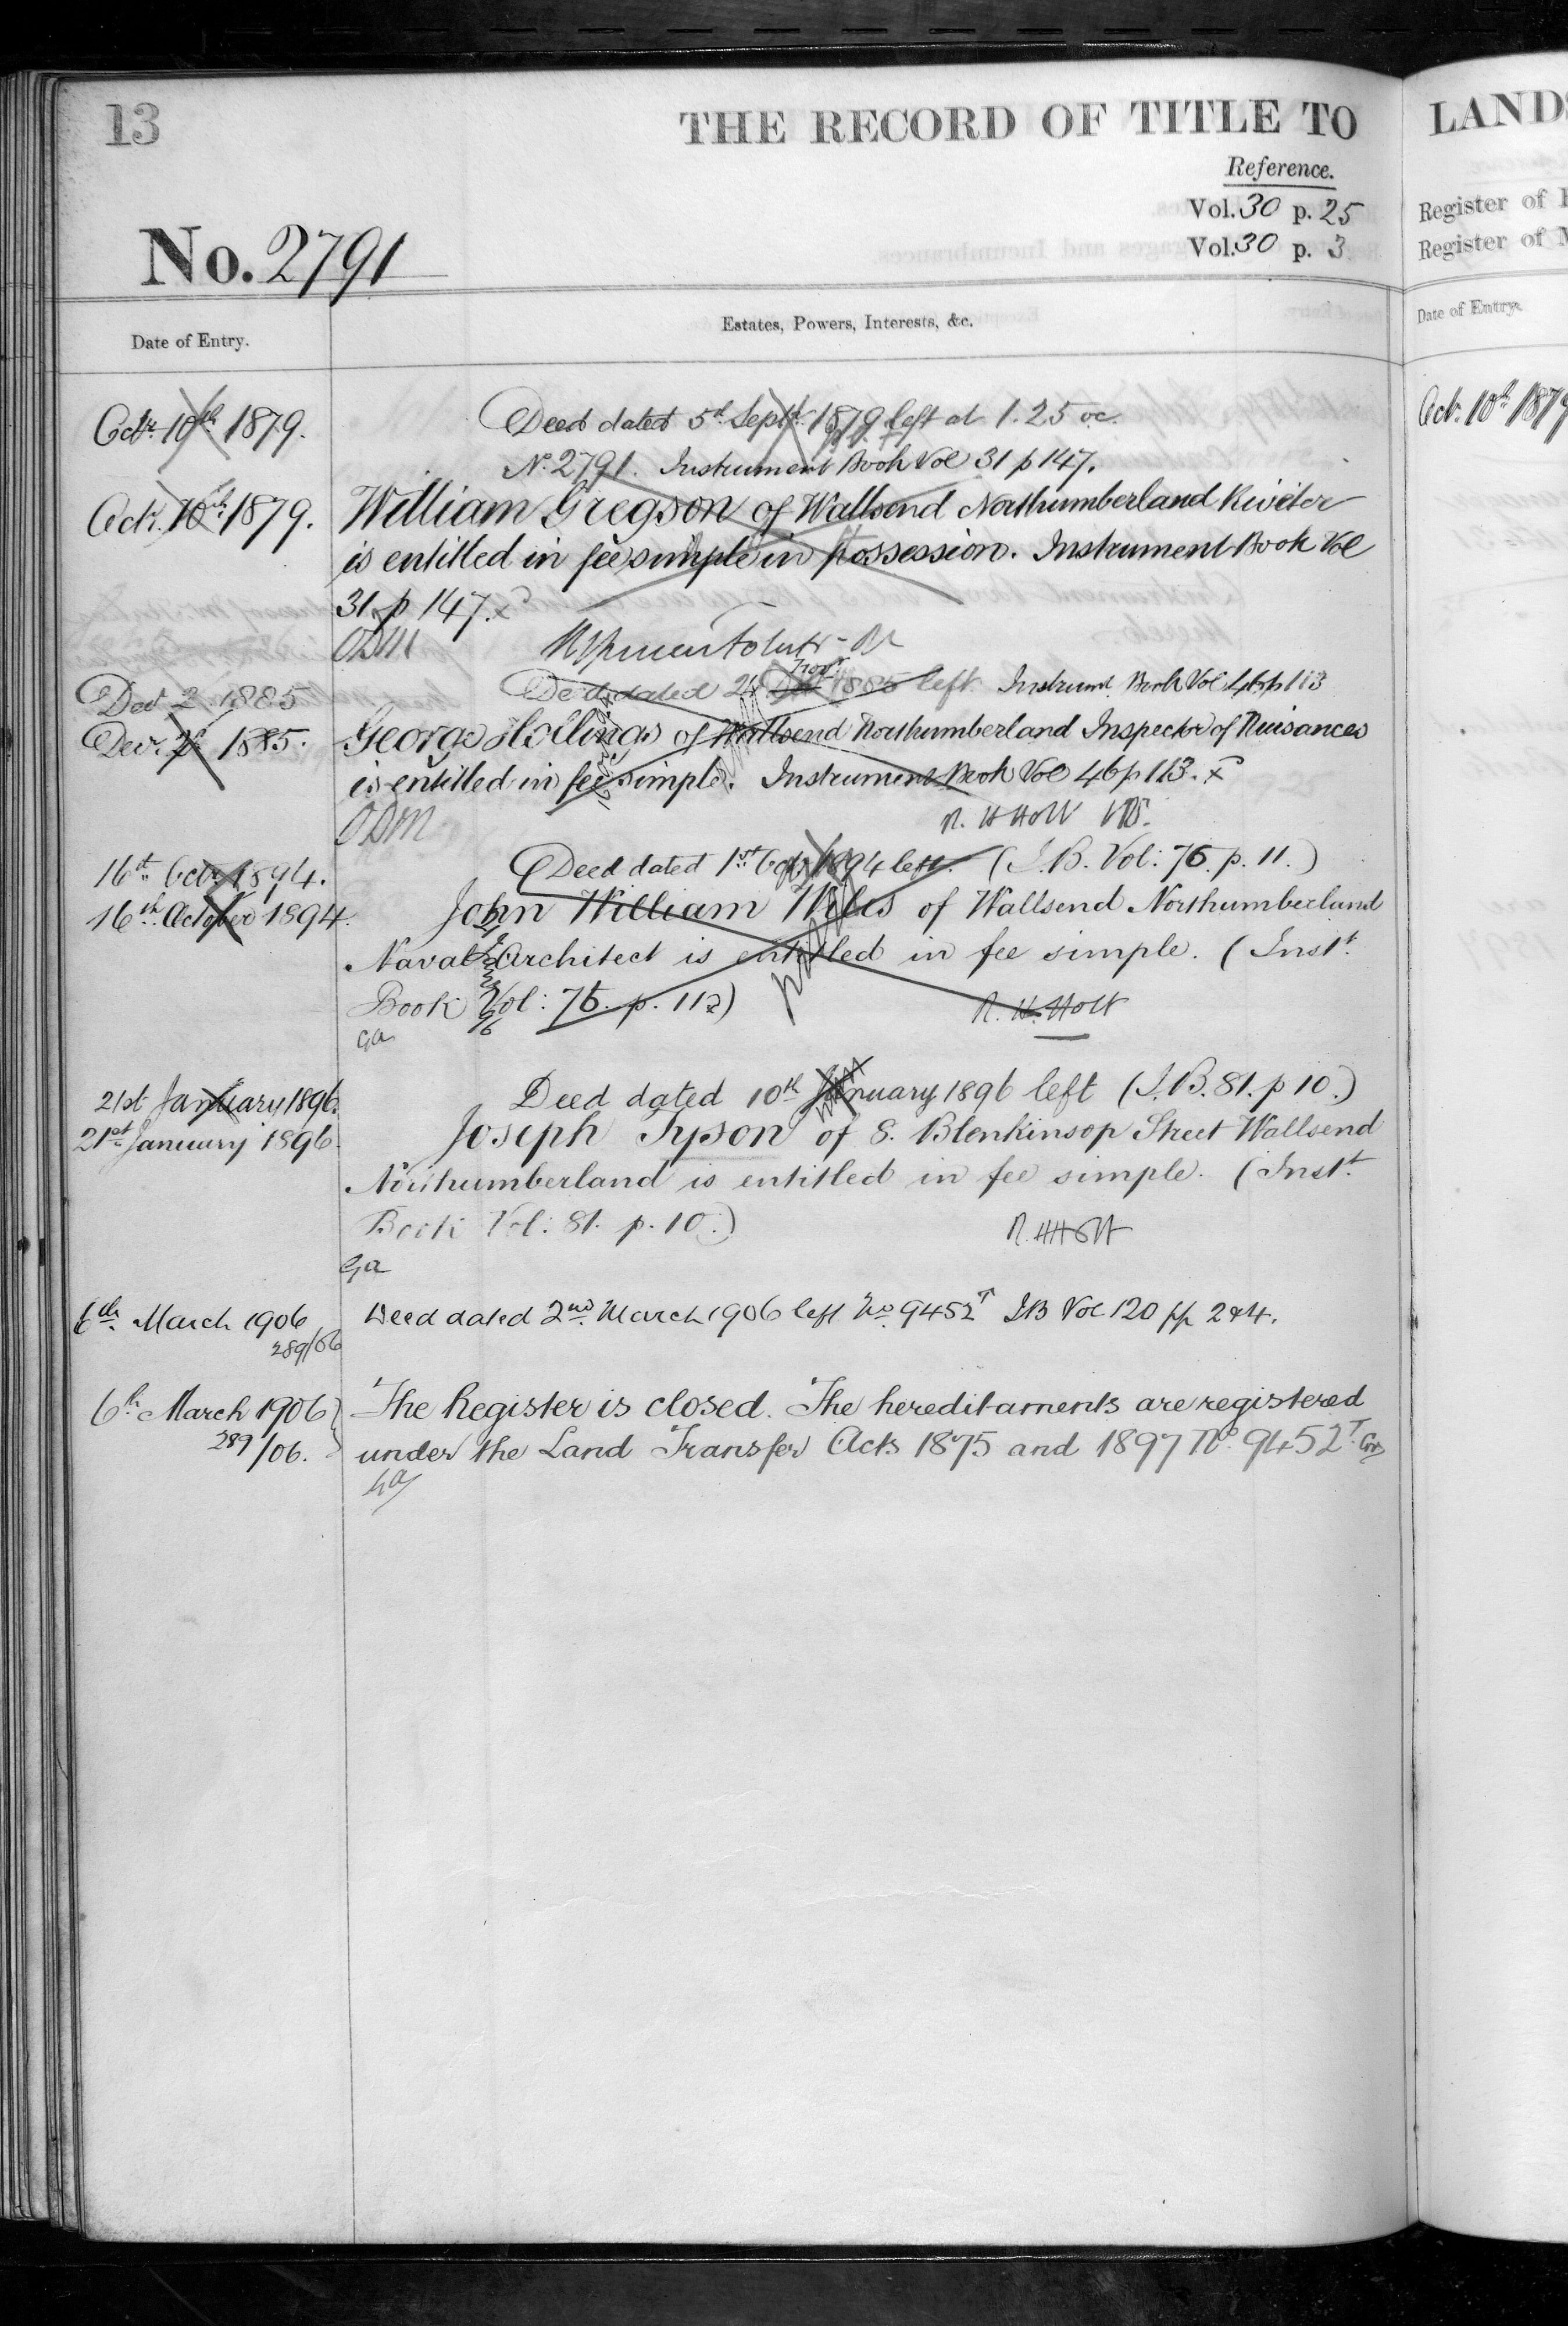 13
THE RECORD OF TITLE TO
LANDS
Reference.
Vol. 30 p. 25
Vol. 30 p. 3
Register of
Register of
No. 2791
Date of Entry.
Estates, Powers, Interests, &c.
Date of Entry.
Octr. 10th 1879.
Deed dated 5th Septr. 1879 left at 1.25 oc.
No. 2791. Instrument Book Vol 31 p 147.
Octr. 10th 1879
Octr. 10th 1879.
William Gregson of Wallsend Northumberland Riveter
is entitled in fee simple in possession. Instrument Book Vol
31 p 147.
ODM
Dec 2 1885
Deed dated Novr. 1885 left Instrumt. Book Vol 46 p 113
Decr. 2 1885.
George Hollings of Wallsend Northumberland Inspector of Nuisances
is entitled in fee simple. Instrument Book Vol 46 p 113.
ODM
R. H Holt
16th Octr. 1894.
Deed dated 1st Octr. 1894 left. (I.B. Vol: 75. p. 11.)
16th October 1894.
John William Wiles of Wallsend Northumberland
Naval Architect is entitled in fee simple. (Inst.t
Book Vol: 75. p. 11)
R. H. Holt
Ga
21st January 1896.
Deed dated 10th January 1896 left (I.B. 81. p 10.)
21st January 1896.
Joseph Tyson of 8. Blenkinsop Street Wallsend
Northumberland is entitled in fee simple. (Inst.t
Book Vol: 81. p. 10.)
R. H Holt
Ga
6th March 1906
289/06
Deed dated 2nd March 1906 left No 9452T IB Vol 120 pp 2&4.
6th March 1906
289/06.
The Register is closed. The hereditaments are registered
under the Land Transfer Acts 1875 and 1897 No. 9452T.
Ga